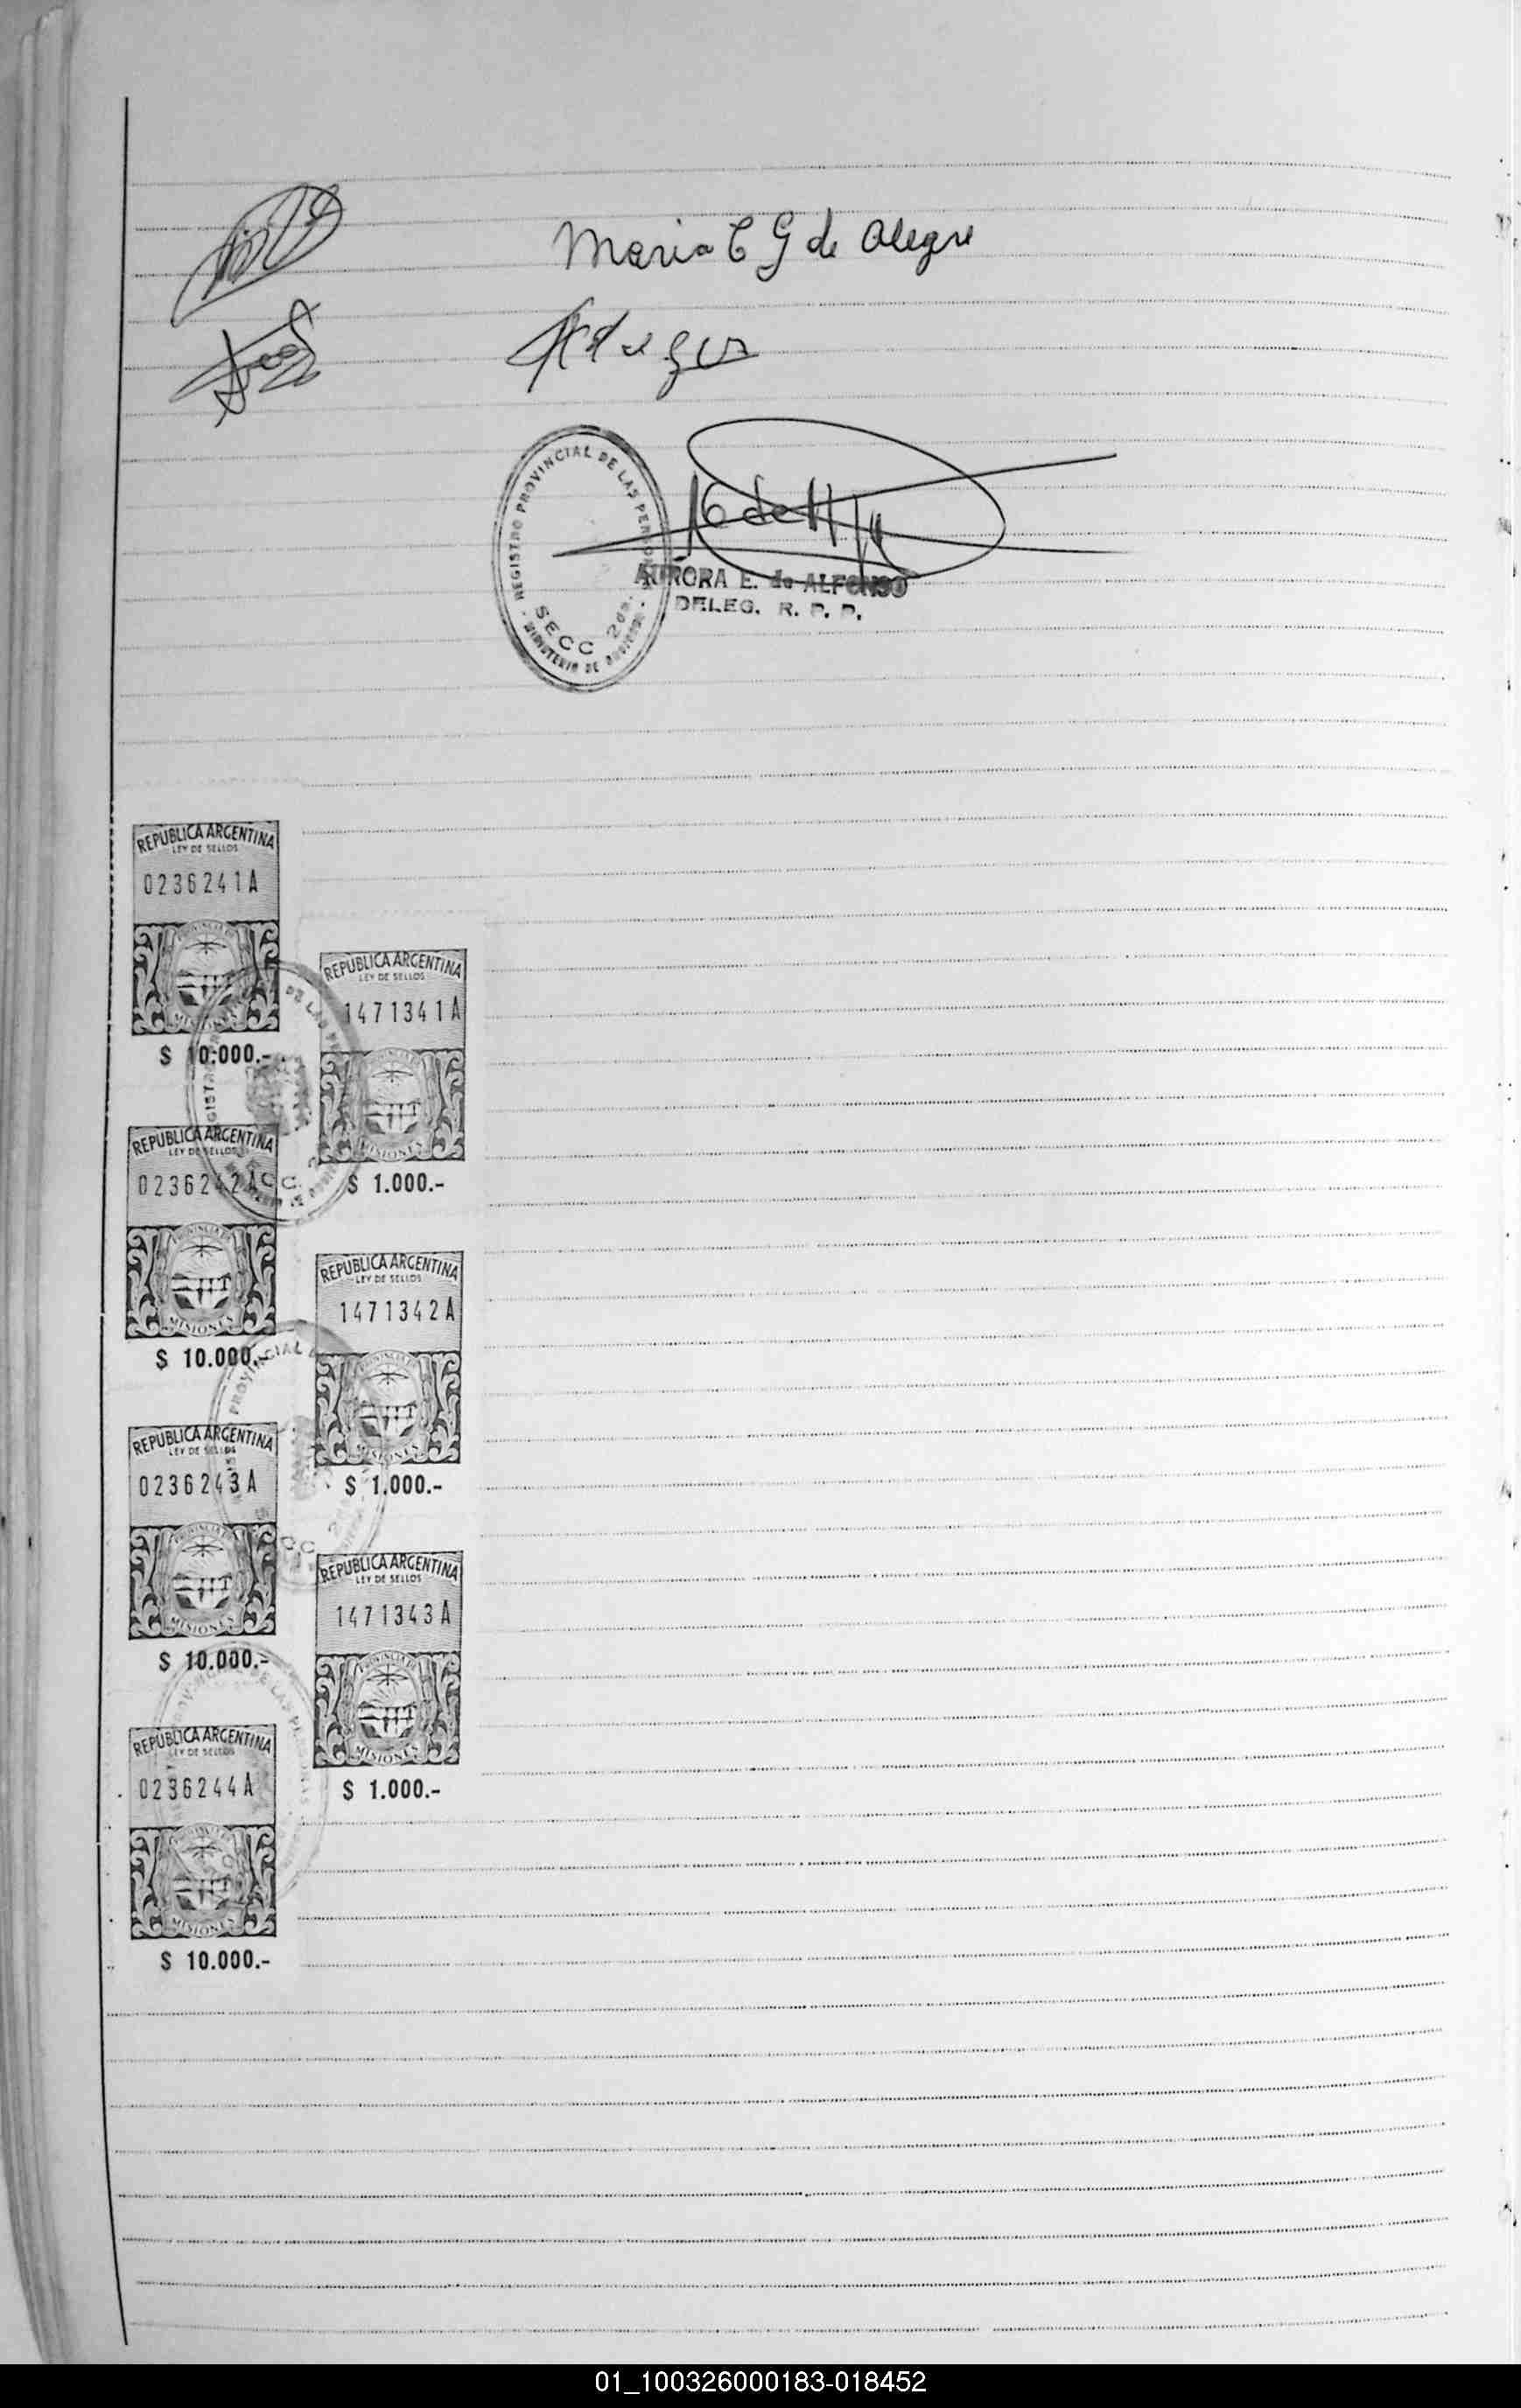 Maria C G de Alegre
REGISTRO PROVINCIAL DE LAS PERSONAS
SECC 2da.
MINISTERIO DE GOBIERNO
AURORA E. de ALFONSO
DELEG. R. P. P.
REPUBLICA ARGENTINA
LEY DE SELLOS
0236241A
MISIONES
$ 10.000.-
REPUBLICA ARGENTINA
LEY DE SELLOS
1471341A
MISIONES
$ 1.000.-
REPUBLICA ARGENTINA
LEY DE SELLOS
0236242A
PROVINCIA DE
MISIONES
$ 10.000.-
REPUBLICA ARGENTINA
LEY DE SELLOS
1471342A
PROVINCIA DE
MISIONES
$ 1.000.-
REPUBLICA ARGENTINA
LEY DE SELLOS
0236243A
PROVINCIA DE
MISIONES
$ 10.000.-
REPUBLICA ARGENTINA
LEY DE SELLOS
1471343A
PROVINCIA DE
MISIONES
$ 1.000.-
REPUBLICA ARGENTINA
LEY DE SELLOS
0236244A
MISIONES
$ 10.000.-
01_100326000183-018452